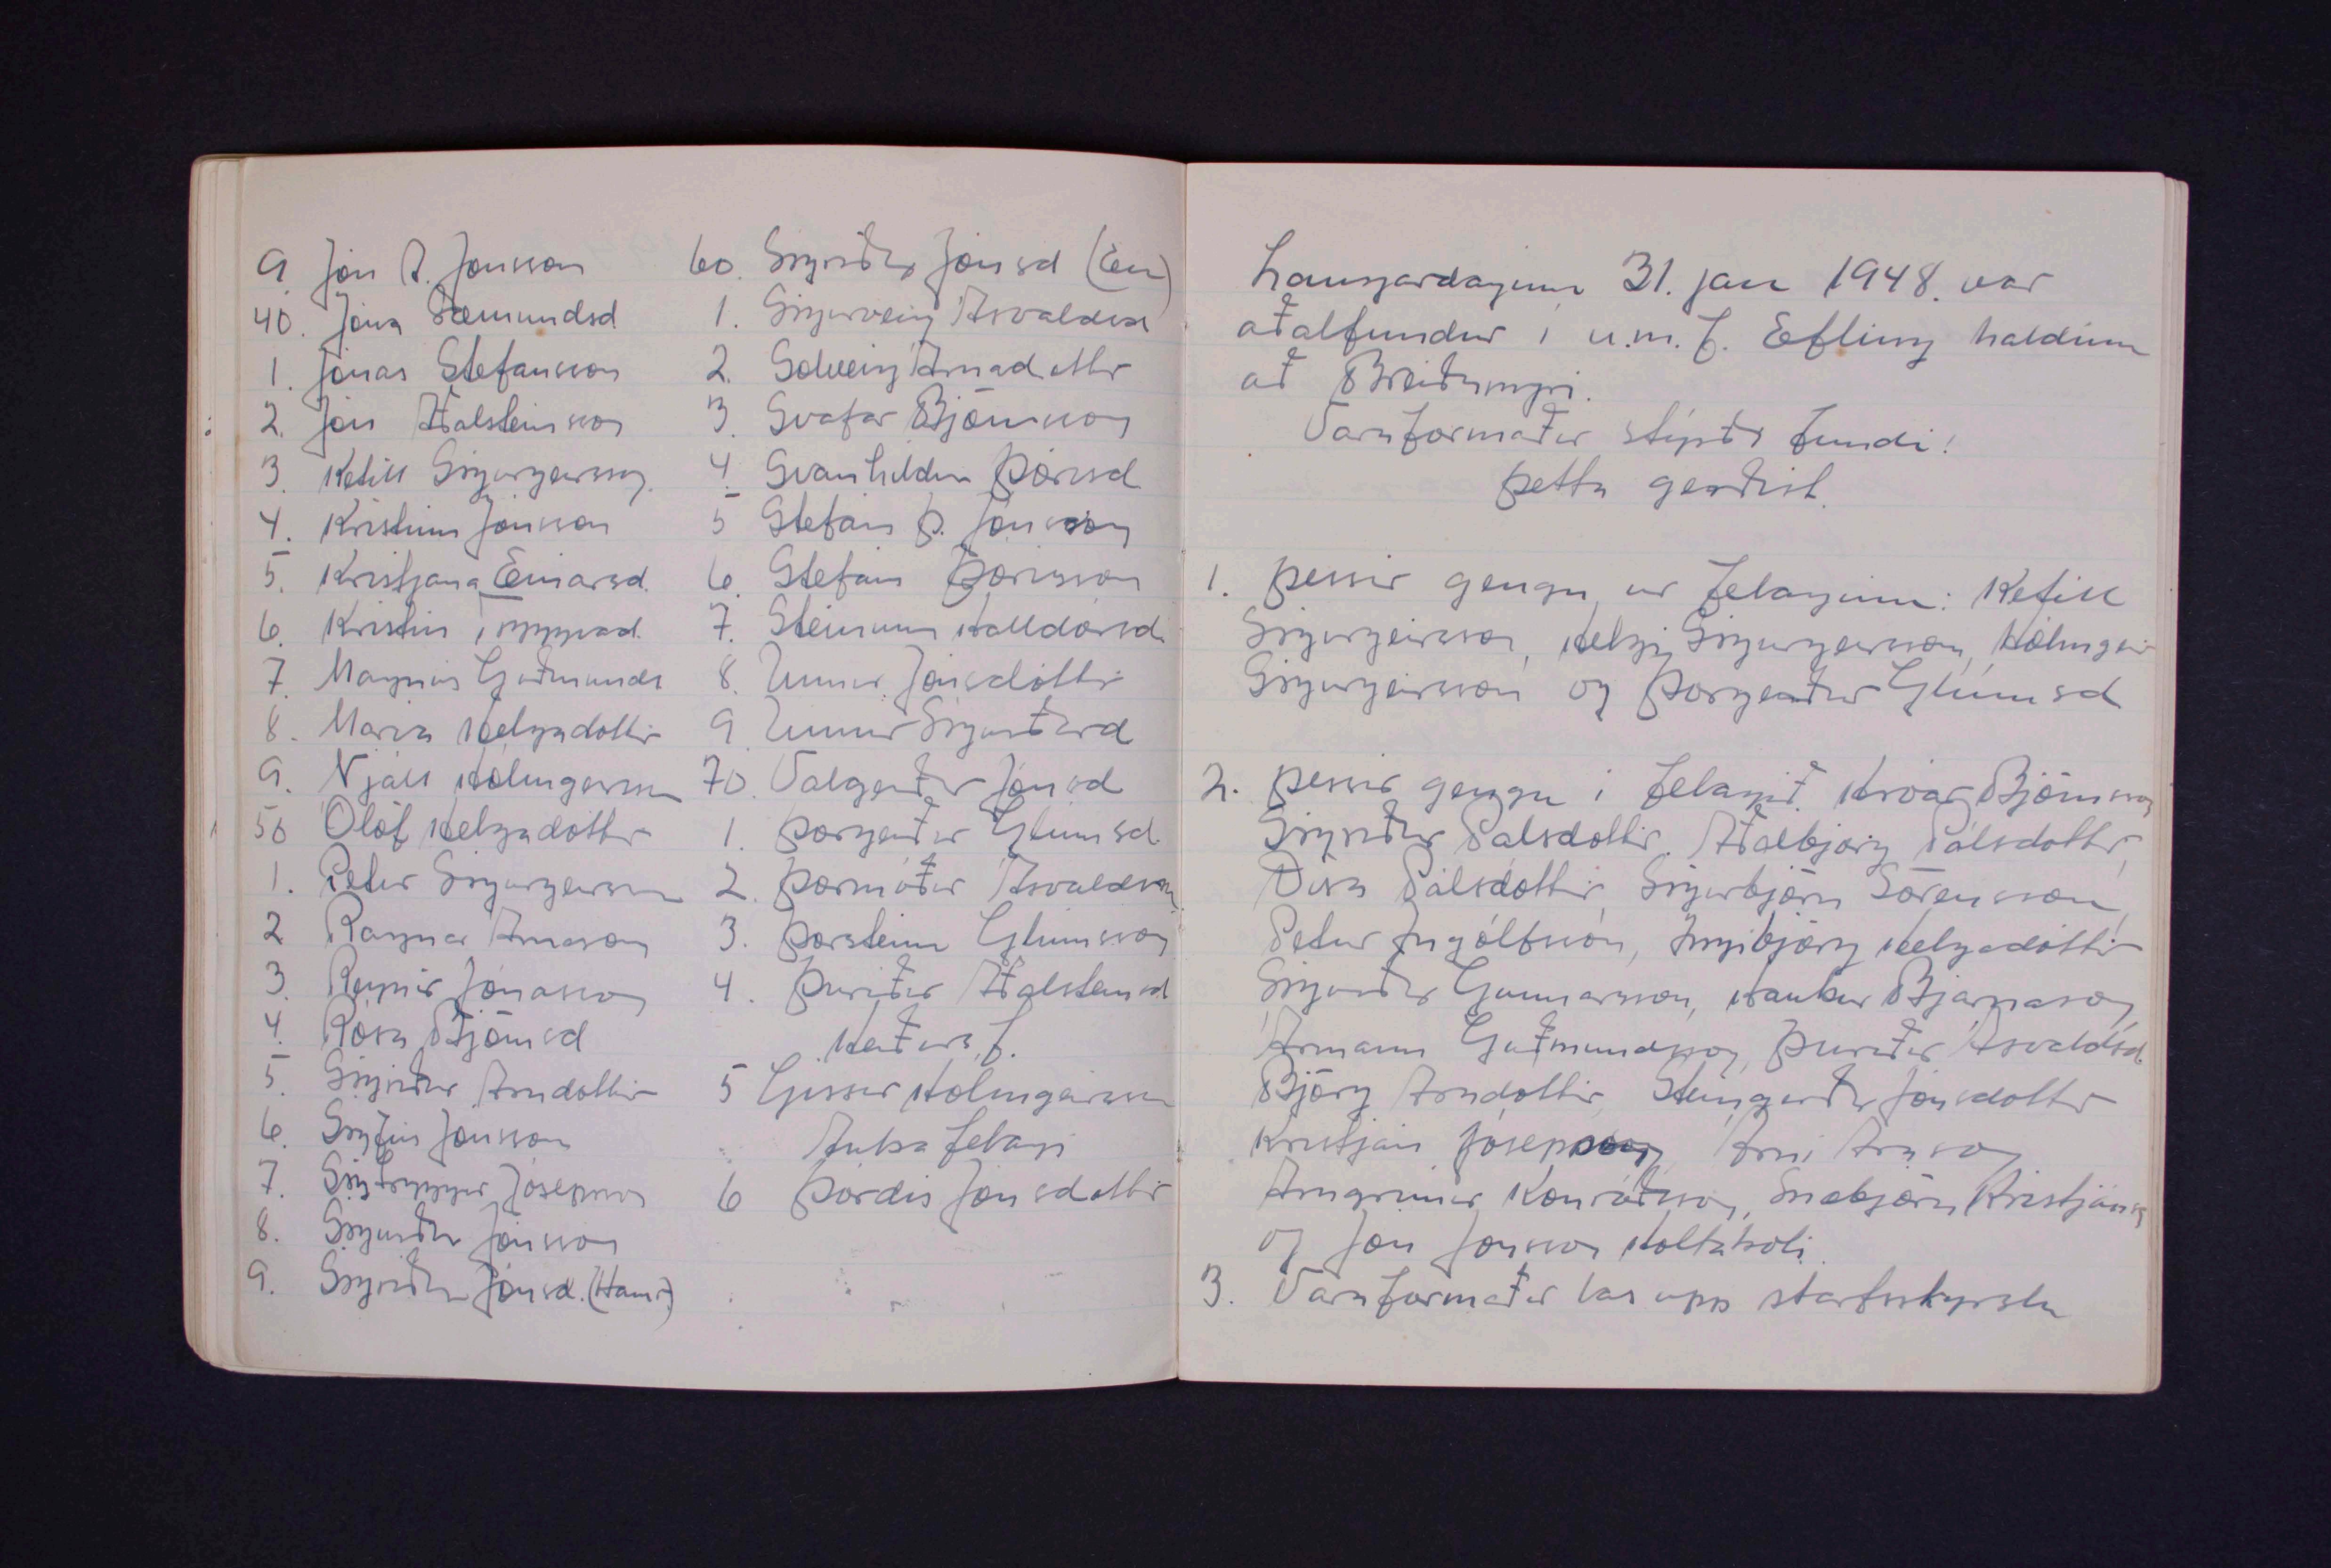 9. Jón A. Jónsson
40. Jóna Sæmundsd
1. Jónas Stefánsson
2. Jón Aðalsteinsson
3. Ketill Sigurgeirsson
4. Kristinn Jónsson
5. Kristjana Einarsd.
6. Kristín Tryggvad.
7. Magnús Guðmunds
8. María Helgadóttir
9. Njáll Hólmgeirsson
50 Ólöf Helgadóttir
1. Pétur Sigurgeirsson
2 Ragnar Árnason
3. Reynir Jónasson
4. Rósa Björnsd
5. Sigríður Arndóttir
6. Sigfús Jónsson
7. Sigtryggur Jósepsson
8. Sigurður Jónsson
9. Sigríður Jónsd. (Hamr.)
60. Sigríður Jónsd (Ein)
1. Sigurveig Ásvaldsd
2. Solveig Árnadóttir
3. Svafar Björnsson
4. Svanhildur Þórisd
5 Stefán Þ. Jónsson
6. Stefán Þórisson
7. Steinunn Halldórsd.
8. Unnur Jónsdóttir
9 Unnur Sigurðard
70. Valgerður Jónsd
1. Þorgerður Glúmsd.
2. Þormóður Ásvaldsson
3. Þorsteinn Glúmsson
4. Þuríður Aðalsteinsd
Heiðurs.f.
5 Gissur Hólmgeirsson
Auka félagi
6 Þórdís Jónsdóttir
Laugardaginn 31. jan 1948. var
aðalfundur í u.m.f. Efling haldinn
að Breiðumýri.
Varaformaður stýrði fundi!
Þetta gerðist.
1. Þessir gengu úr félaginu: Ketill
Sigurgeirsson, Helgi Sigurgeirsson, Hólmgeir
Sigurgeirsson og Þorgerður Glúmsd
2. Þessir gengu í félagið. Hróar Björnsson
Sigríður Pálsdóttir. Aðalbjörg Pálsdóttir,
Dísa Pálsdóttir, Sigurbjörn Sörensson,
Pétur Ingólfsson, Ingibjörg Helgadóttir
Sigurður Gunnarsson, Haukur Bjarnason,
Ármann Guðmundsson, Þuríður Ásvaldsd.
Björg Arndóttir, Steingerður Jónsdóttir
Kristján Jósepsson, Árni Árnason
Arngrímur Konráðsson, Snæbjörn Kristjánss
og Jón Jónsson Holtakoti.
3. Varaformaður las upp starfsskýrslu